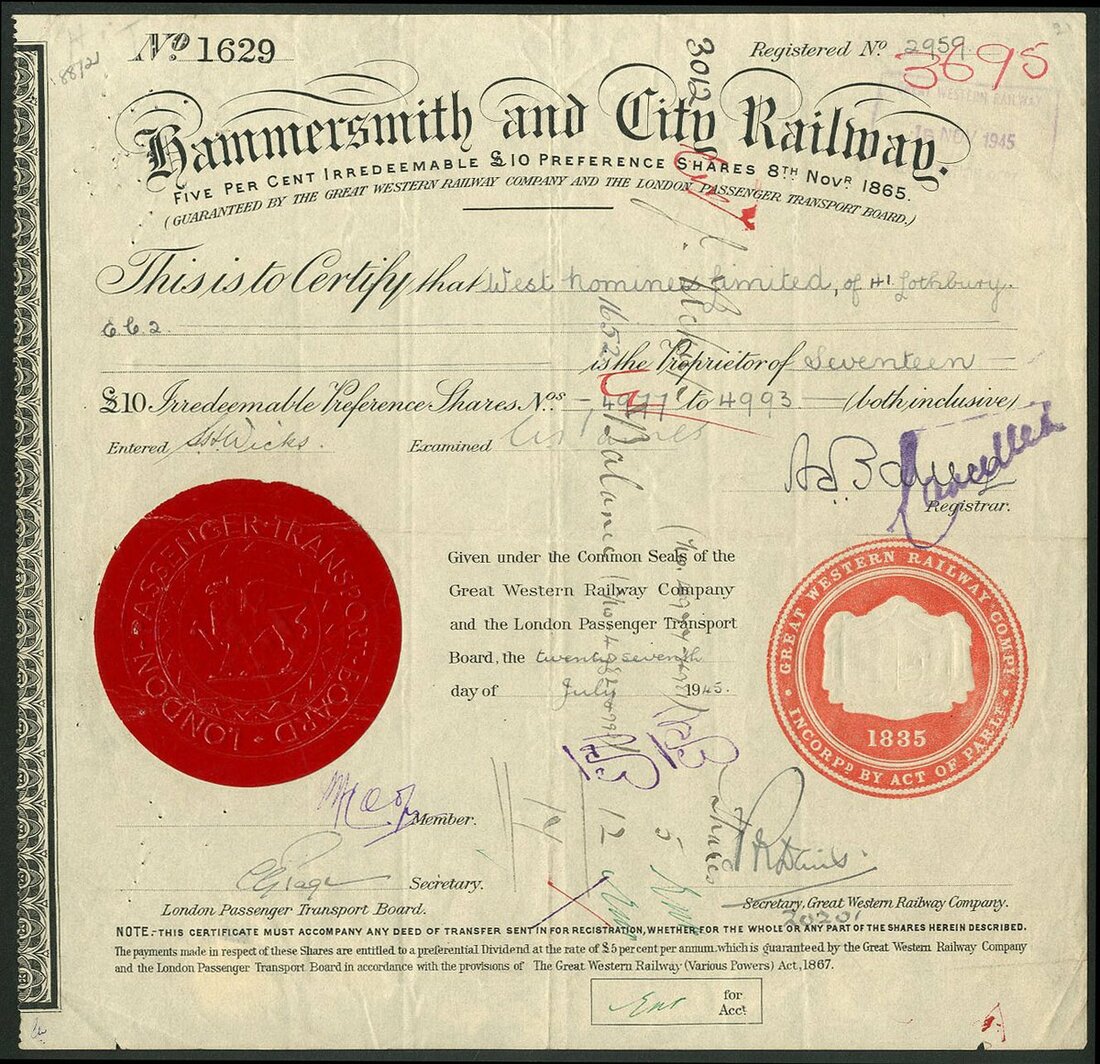 No 1629
Registered No 2959
3695
3012
GREAT WESTERN RAILWAY
16 NOV 1945
Hammersmith and City Railway.
FIVE PER CENT IRREDEEMABLE £10 PREFERENCE SHARES 8TH NOVR 1865.
(GUARANTEED BY THE GREAT WESTERN RAILWAY COMPANY AND THE LONDON PASSENGER TRANSPORT BOARD.)
This is to Certify that West Nominees Limited, of 41 Lothbury.
E.C.2.
is the Proprietor of Seventeen
£10 Irredeemable Preference Shares Nos 4977 to 4993 (both inclusive)
Entered
Examined
Cancelled
Registrar.
LONDON · PASSENGER · TRANSPORT · BOARD
Given under the Common Seals of the
Great Western Railway Company
and the London Passenger Transport
Board, the twenty seventh
day of July 1945.
GREAT WESTERN RAILWAY COMPY
INCORPD BY ACT OF PARLT
1835
Member.
Secretary.
London Passenger Transport Board.
Secretary, Great Western Railway Company.
20201
NOTE:-THIS CERTIFICATE MUST ACCOMPANY ANY DEED OF TRANSFER SENT IN FOR REGISTRATION, WHETHER FOR THE WHOLE OR ANY PART OF THE SHARES HEREIN DESCRIBED.
The payments made in respect of these Shares are entitled to a preferential Dividend at the rate of £5 per cent per annum, which is guaranteed by the Great Western Railway Company
and the London Passenger Transport Board in accordance with the provisions of The Great Western Railway (Various Powers) Act, 1867.
for
Acct